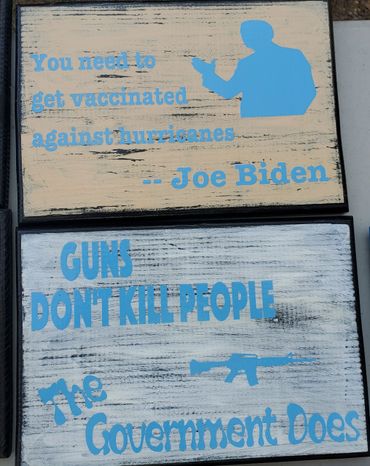 You need to
get vaccinated
against hurricanes
-- Joe Biden
GUNS
DON'T KILL PEOPLE
The
Government Does